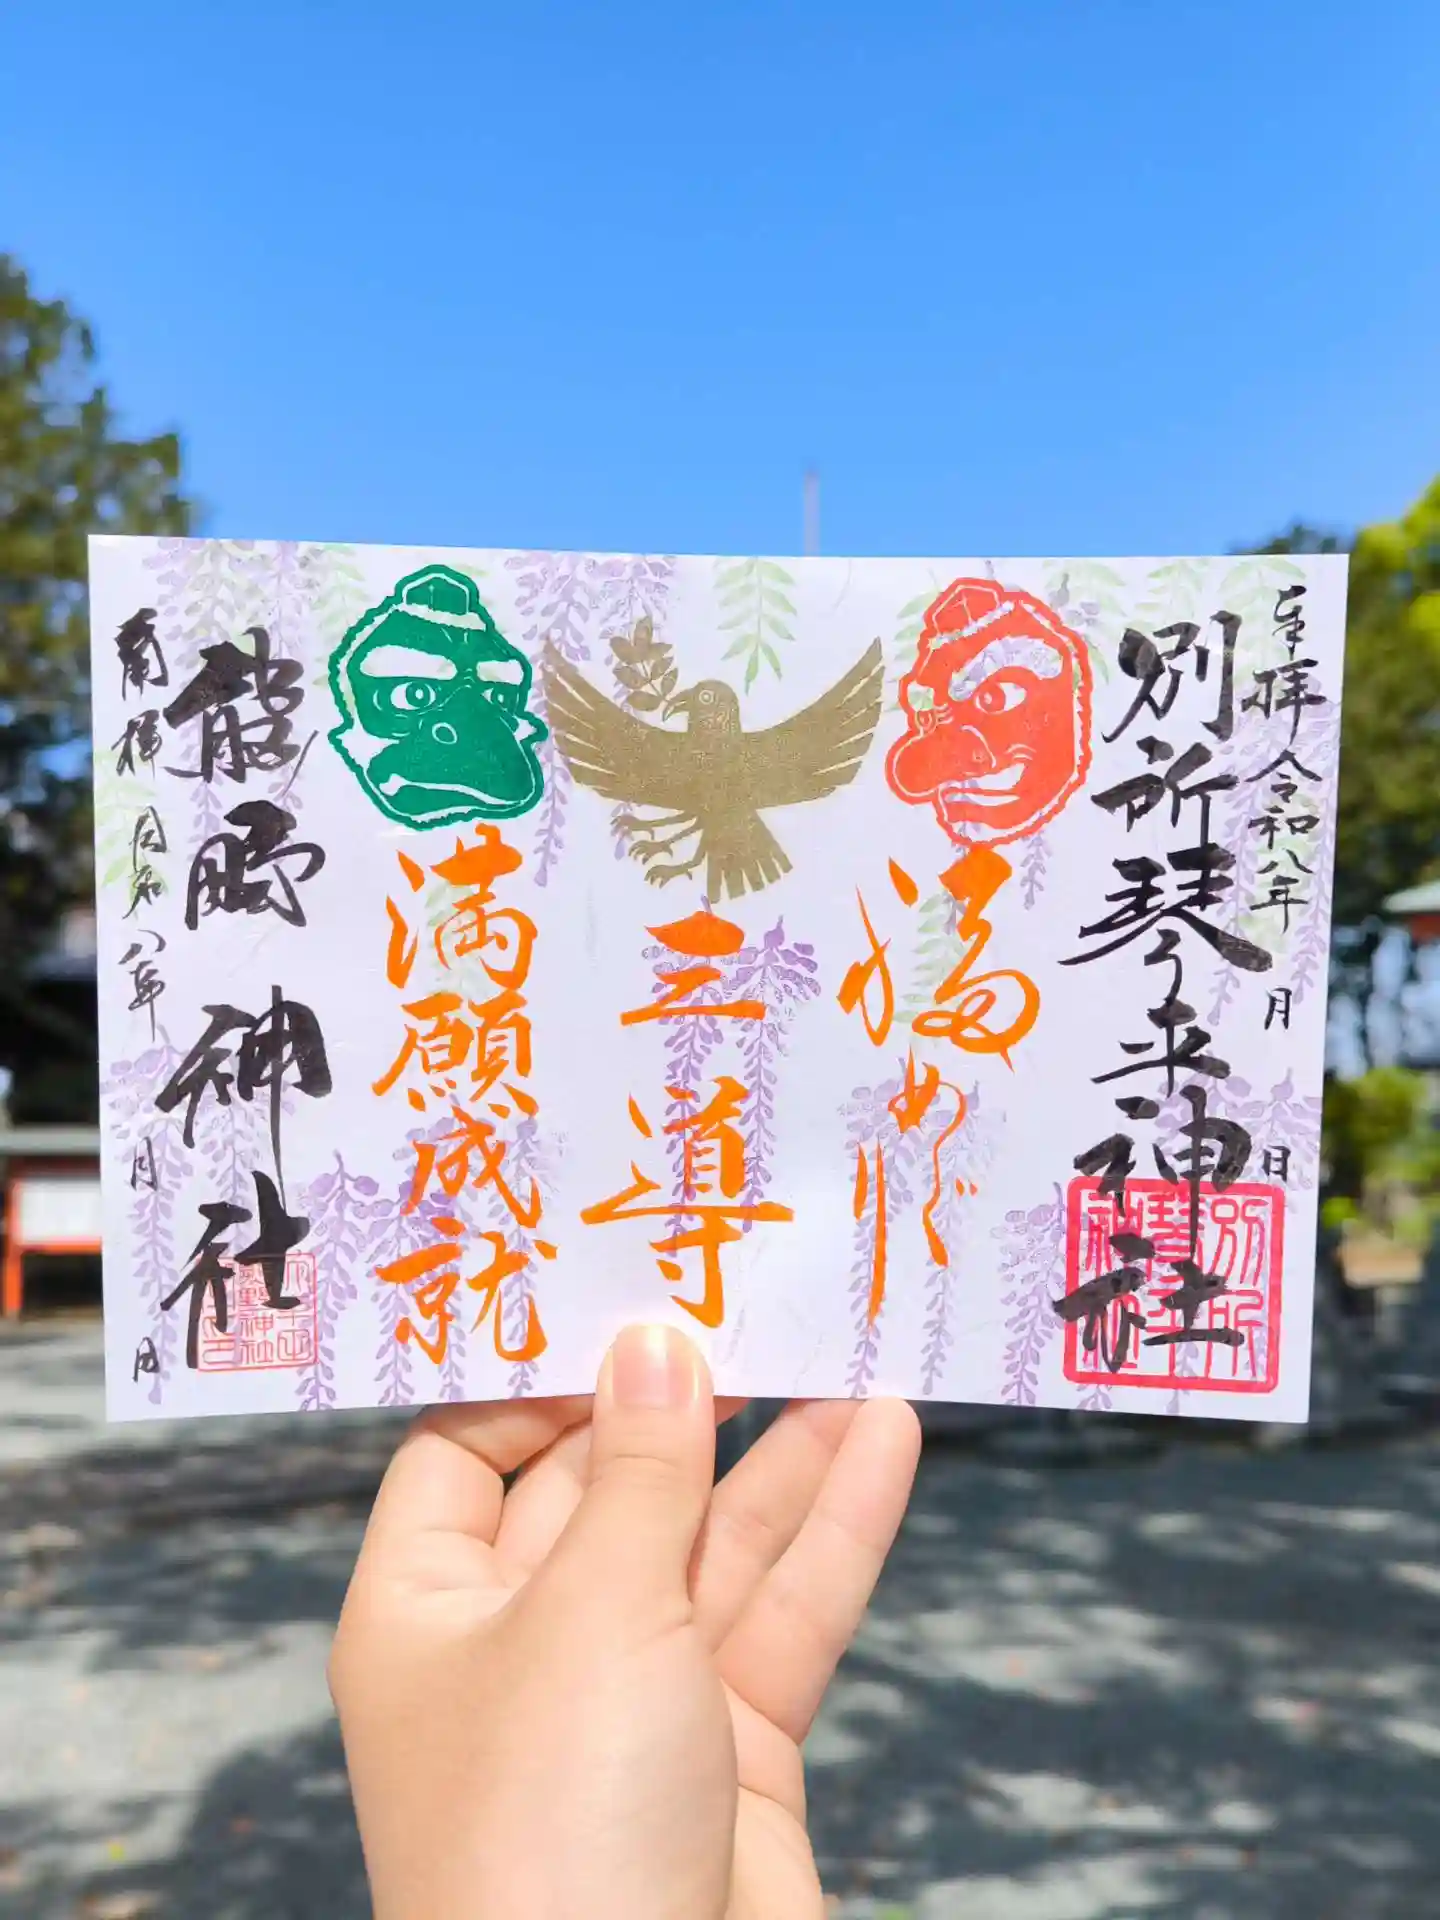 奉拝 令和八年 月 日
別所琴平神社
別所
琴平
神社
福めぐり
三導
満願成就
熊野神社
熊野神社
奉拝 令和八年 月 日